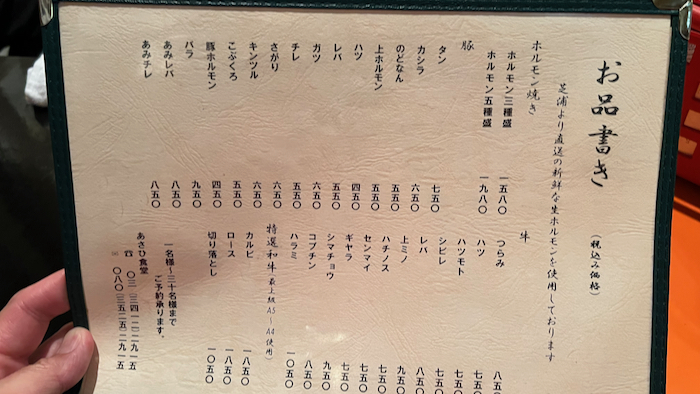 お品書き
(税込み価格)
芝浦より直送の新鮮な生ホルモンを使用しております
ホルモン焼き
ホルモン三種盛 一五八〇
ホルモン五種盛 一九八〇
豚
タン 七五〇
カシラ 六五〇
のどなん 五五〇
上ホルモン 五五〇
ハツ 四五〇
レバ 五五〇
ガツ 六五〇
チレ 五五〇
さがり 六五〇
キンツル 六五〇
こぶくろ 五五〇
豚ホルモン 四五〇
バラ 九五〇
あみレバ 八五〇
あみチレ 八五〇
牛
つらみ 八五〇
ハツ 七五〇
ハツモト 七五〇
シビレ 七五〇
レバ 八五〇
上ミノ 九五〇
ハチノス 七五〇
センマイ 七五〇
ギヤラ 七五〇
シマチョウ 九五〇
コプチン 八五〇
ハラミ 一〇五〇
特選和牛(最上級A5〜A4使用)
カルビ 一八五〇
ロース 一八五〇
切り落とし 一〇五〇
一名様〜三十名様まで
ご予約承ります。
あさひ食堂
☎ 〇三(三四一二)二九一五
〇八〇(三五二五)二九一五